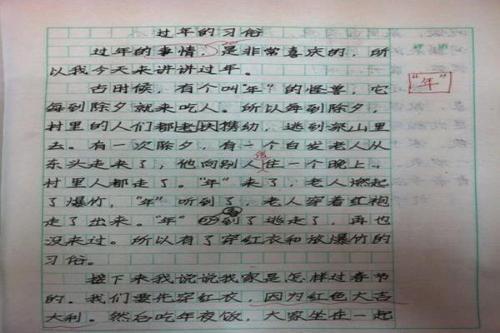 过年的习俗
过年的事情，是非常喜庆的，所
以我今天来讲讲过年。
古时候，有个叫“年”的怪兽，它
每到除夕就来吃人。所以每到除夕，
村里的人们都老扶携幼，逃到深山里
去。有一次除夕，有一个白发老人从
东头走来了，他向别人住一个晚上。
村里人都走了。“年”来了，老人燃起
了爆竹，“年”听到了，老人穿着红袍
走了出来。“年”到了逃走了，再也
没来过。所以有了穿红衣和放爆竹的
习俗。
接下来我说说我家是怎样过春节
的。我们要先穿红衣，因为红色大吉
大利。然后吃年夜饭，大家坐在一起
“年”